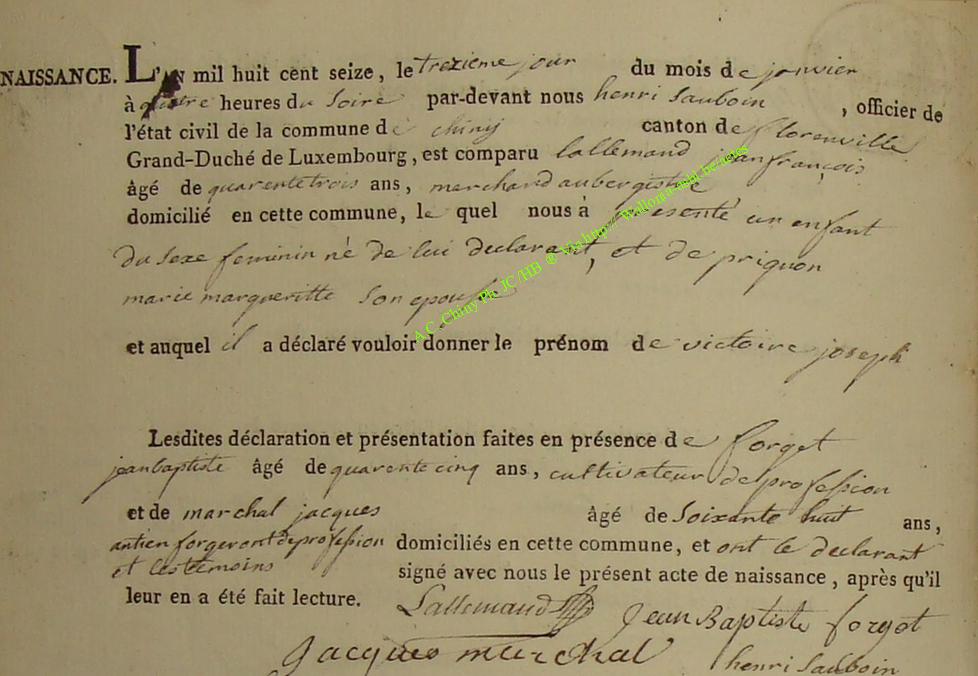 NAISSANCE. L'AN mil huit cent seize, le trezieme jour du mois de janvier
à quatre heures du Soire par-devant nous henri Sauboin, officier de
l'état civil de la commune de chiny canton de florenville
Grand-Duché de Luxembourg, est comparu lallemand jean françois
âgé de quarente trois ans, marchand aubergiste
domicilié en cette commune, le quel nous à presenté un enfant
du sexe feminin né de lui declarant, et de priquon
marie margueritte son epouse
et auquel il a déclaré vouloir donner le prénom de victoire joseph
Lesdites déclaration et présentation faites en présence de forget
jean baptiste âgé de quarente cinq ans, cultivateur de profession
et de marchal jacques âgé de Soixante huit ans,
antien forgeront de profession domiciliés en cette commune, et ont le declarant
et les temoins signé avec nous le présent acte de naissance, après qu'il
leur en a été fait lecture. Lallemand Jean Baptiste forget
jacques marchal henri Sauboin
A.C. Chiny Ph JC HB ® Via http://